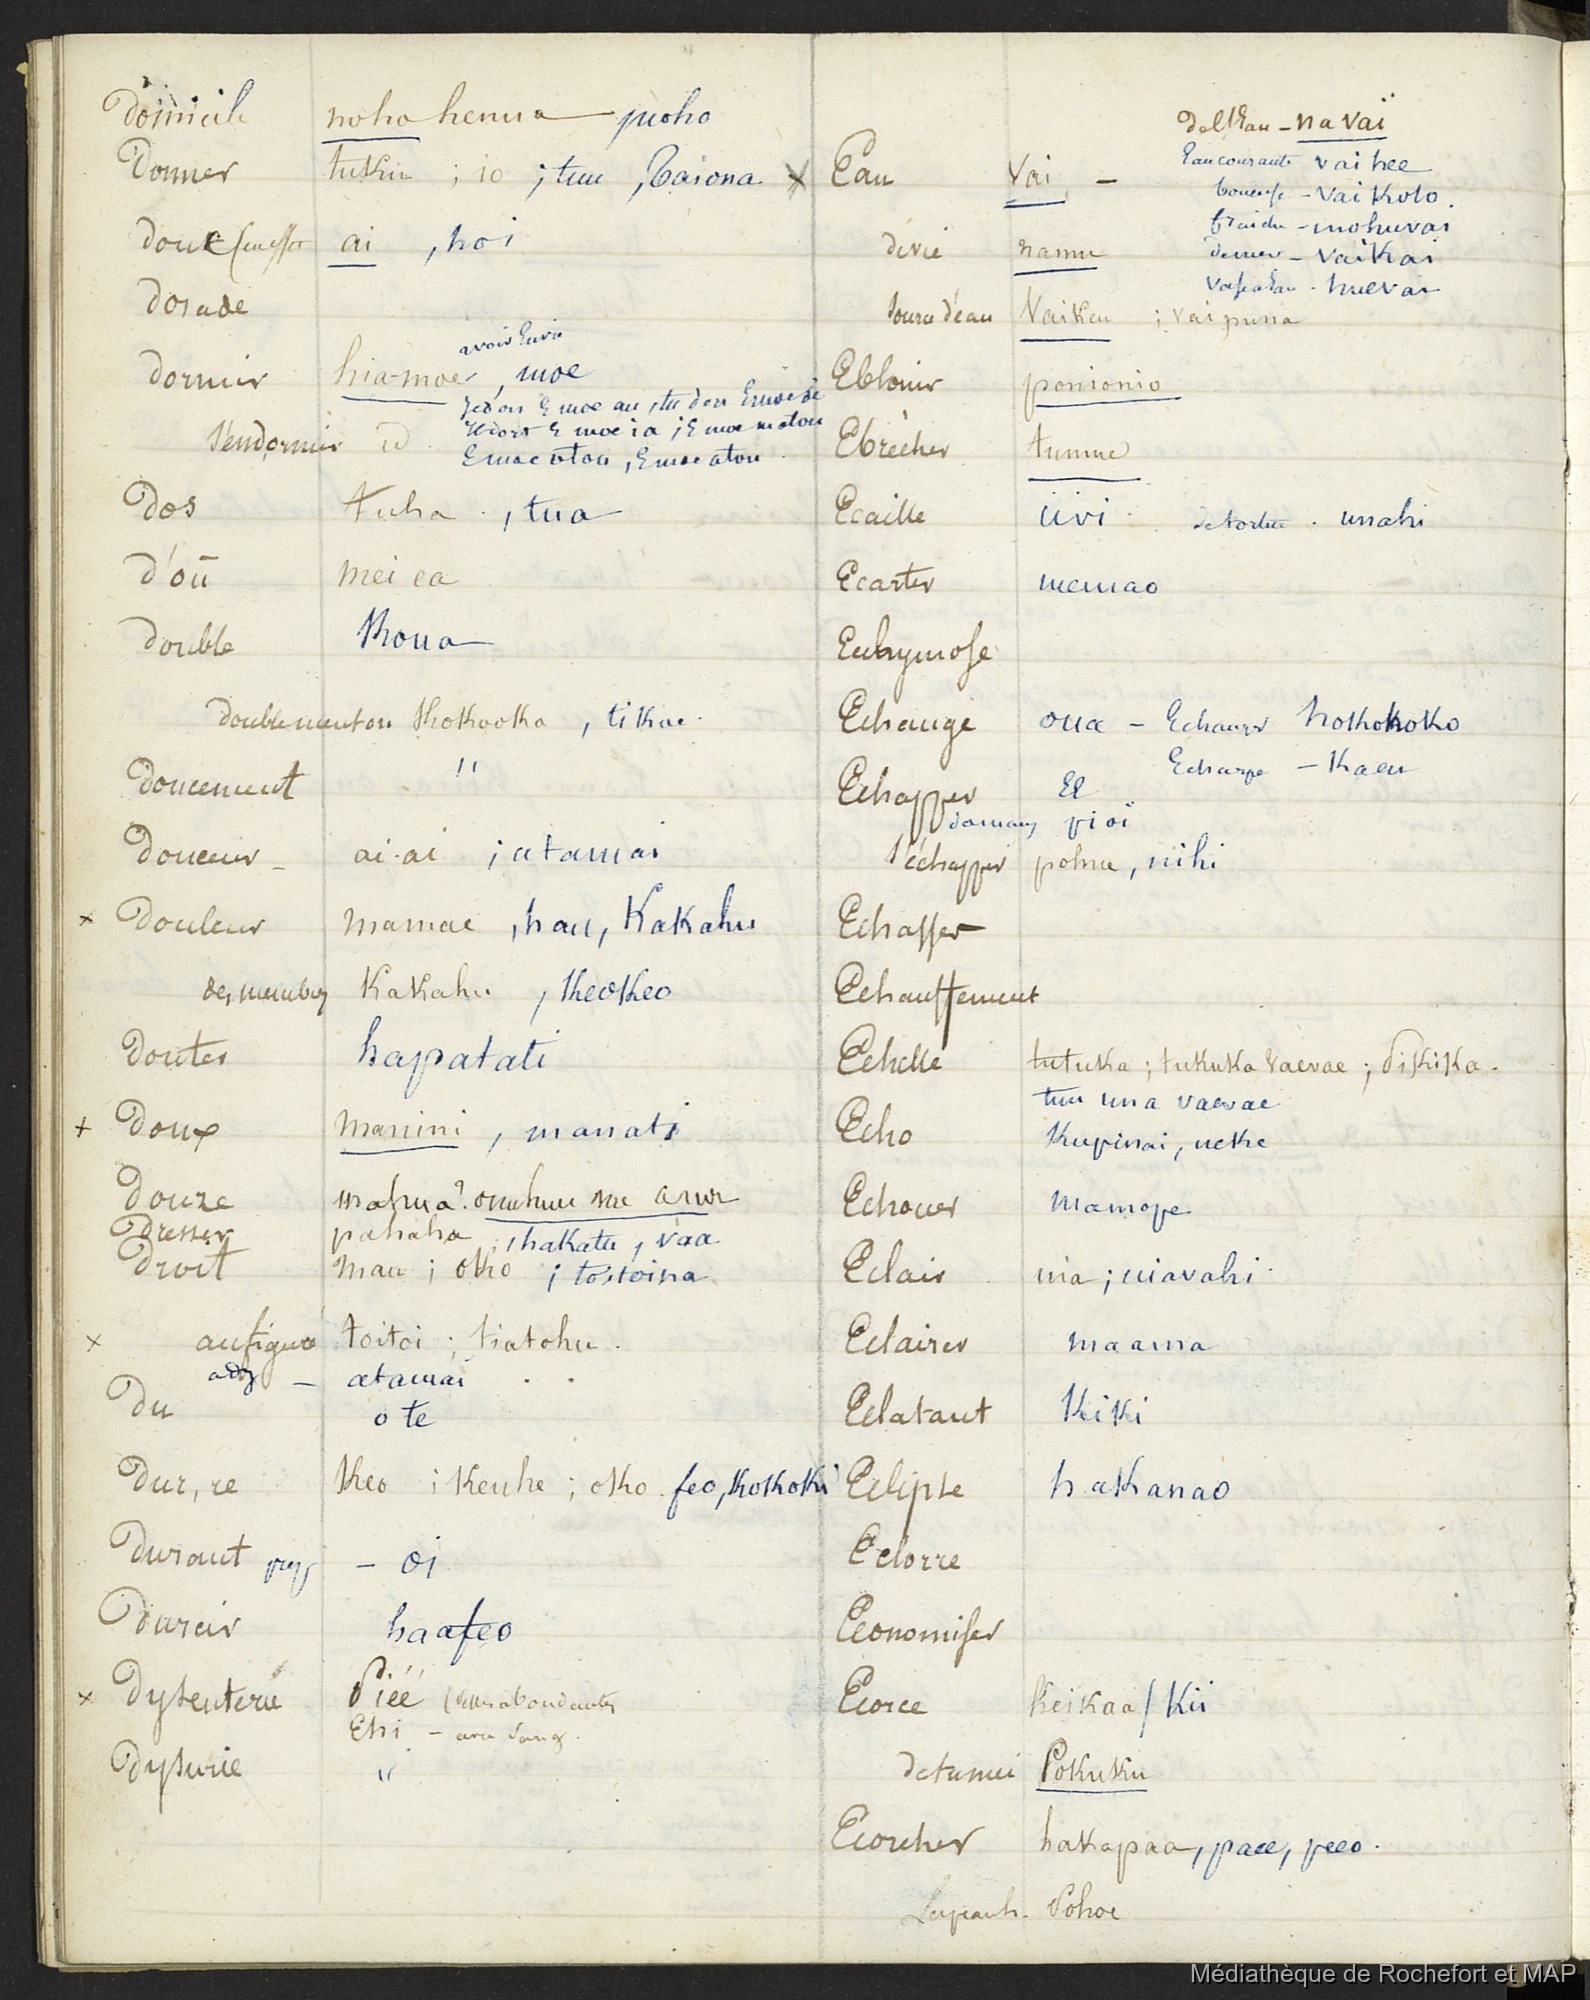 Domicile noho henua puoho
Donner tuku ; io ; tuu , Taiona
doux ai , hoi
dosade
avoir Envie
dormir hia-moe , moe
s'endormir id
Je dors E moe au , tu dors
Il dort E moe ia ; E moe matou
E moe otou , E moe atou
Dos tuha , tua
d'où mei ea
double Koua
double menton Kokooka , tikae
doucement "
douceur ai-ai ; atamai
x Douleur mamae , hau , Kakahu
des membres Kakahu , Keokeo
Douter hapatati
+ Doux Manini , manati
Douze mahua ? onohuu me
Dresser pahaha , hakatu , vaa
Droit mau ; oko ; toitoina
x au figuré toitoi ; tiatohu
adj – atamai
Du o te
Dur, re Keo ; Keuhe ; oko feo, Kokoki
Durant prep – oi
Durcir haafeo
x Dysenterie Piéé (selles abondantes
Ehi – avec sang
Dysurie "
de l'Eau – na vaï
x Eau Vai –
Eau courante vai hee
boueuse – vai Koto
fraiche – mohuvai
de mer – vaïkai
vase à Eau – huevai
de vie namu
source d'eau Vaikeu ; vai puna
Eblouir ponionio
Ebrècher tumue
Ecaille üvi de tortue unahi
Ecarter memao
Echymose
Echangé oua – Echanger hokokoko
Echarpe – Kaeu
Echapper
pioï
s'échapper pohue , nihi
Echasser
Echauffement
Echelle tutuka ; tukuka vaevae ; Pikika
tuu una vaevae
Echo Kupinai , ueke
Echouer mamope
Eclair uia ; uiavahi
Eclairer maama
Eclatant Keiki
Eclipse hakanao
Eclorre
Economiser
Ecorce Keikaa / Kii
Pokuku
Ecorcher hakapaa, paee, peeo
Pohoe
Médiathèque de Rochefort et MAP